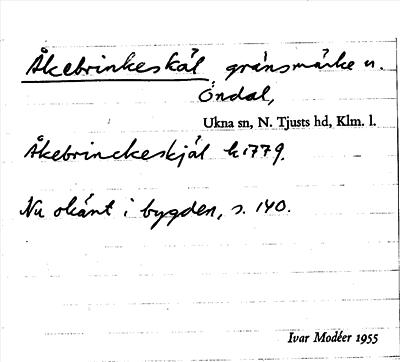 Åkebrinkeskäl, gränsmärke n.
Öndal,
Ukna sn, N. Tjusts hd, Klm. l.
Åkebrinckeskjäl k 1779.
Nu okänt i bygden, s. 140.
Ivar Modéer 1955